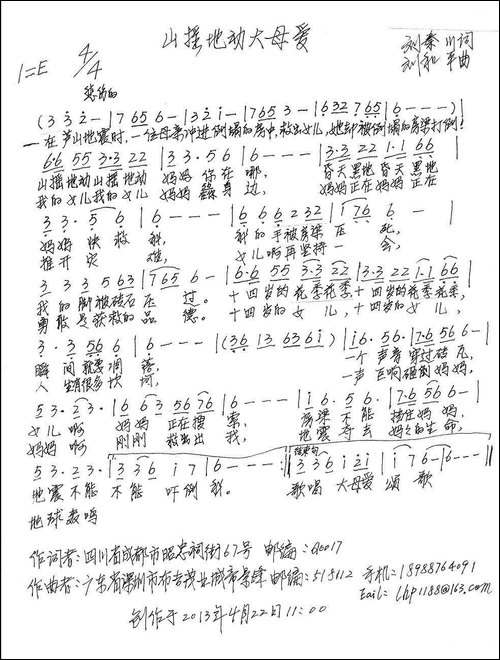 山摇地动大母爱
刘秦川词
刘和平曲
1=E 4/4
悲伤的
(3 3 2 - | 7 6 5 6 - | 3 2 1 - | 7 6 5 3 - | 6 3 2 7 6 5 | 6 - - - ) |
一在芦山地震时，一位母亲冲进倒塌的房中，救出女儿，她却被倒塌的房梁打倒！
6·6 5 5 3·3 2 2 | 3 3·5 6 | 6 - - - | 3·3 2 2 1·1 6 6 |
山摇地动山摇地动 妈妈你在哪， 昏天黑地昏天黑地
我的女儿我的女儿 妈妈 身边， 妈妈正在妈妈正在
3 3·5 6 | 6 - - - | 6 6 6 2 3 2 | 1 7 6 6 - |
妈妈快救我， 我的手被房梁压死，
推开灾难， 女儿啊再坚持一会，
3 3 3 5 6 3 | 7 6 5 6 - | 6·6 5 5 3·3 2 2 | 3·3 2 2 1·1 6 6 |
我的脚被砖石压过。 十四岁的花季花季，十四岁的花季花季，
勇敢是获救的品德。 十四岁的女儿，十四岁的女儿，
3·3 5 6 6 | 6 - - - | (3 6 1 3 6 3 6 1) | 1 6·5 6· | 7·6 5 6 6 - |
瞬间就要凋落， 一个声音穿过砖瓦，
人生有很多坎坷， 一声巨响砸到妈妈，
5 3·2 3· | 6 6 3 5 6 7 6 | 6 - - - | 1 6·5 6 | 7·6 5 6 6 - |
女儿啊 妈妈正在搜索， 房梁不能挡住妈妈，
妈妈啊 刚刚救出我， 地震夺去妈妈的生命，
5 3·2 3· | 3 3 6 1 7 | 6 - - - :| 结束句 3 3 6 1 2 1 | 1 7 6 - | 6 - - - ||
地震不能不能吓倒我。 歌唱大母爱颂歌
地球轰鸣
作词者：四川省成都市昭忠祠街67号 邮编：610017
作曲者：广东省深圳市布吉茂业城市景峰 邮编：518112 手机：18988764091
Eail：lhp1188@163.com
创作于2013年4月22日11：00